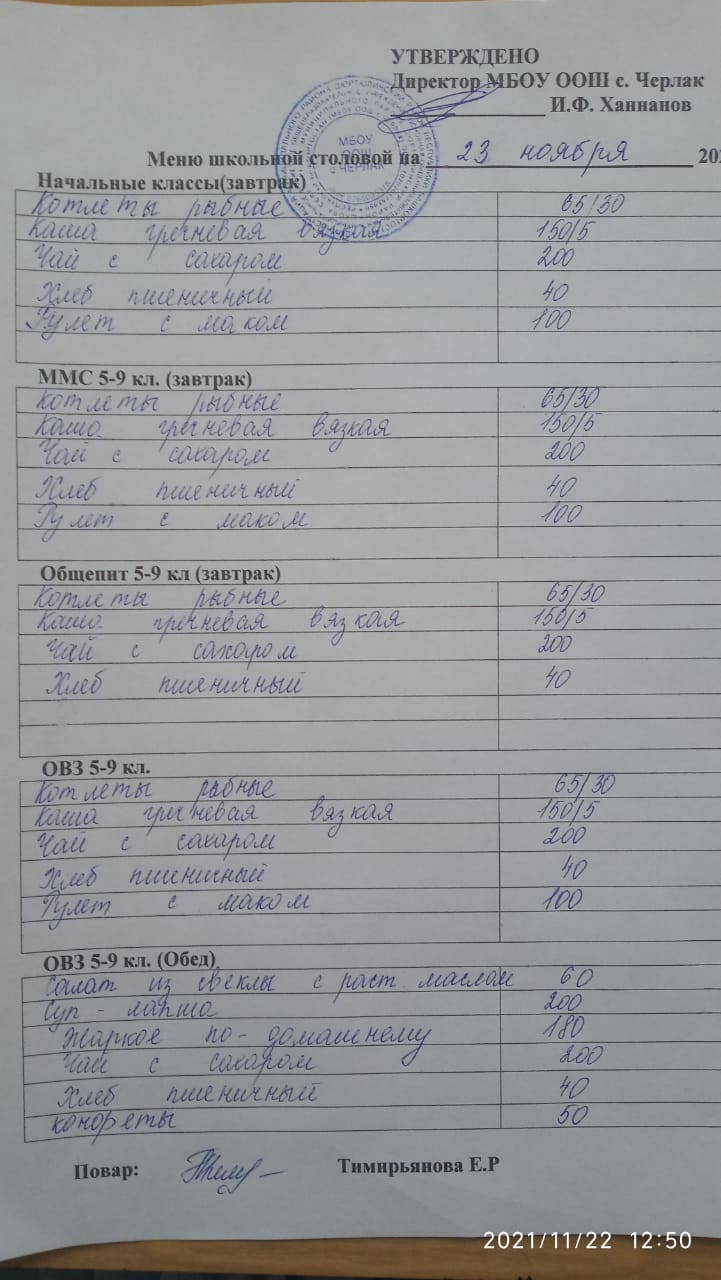 УТВЕРЖДЕНО
Директор МБОУ ООШ с. Черлак
И.Ф. Ханнанов
МБОУ
ООШ
с. ЧЕРЛАК
Меню школьной столовой на 23 ноября 202
Начальные классы(завтрак)
Котлеты рыбные 65/30
Каша гречневая вязкая 150/5
Чай с сахаром 200
Хлеб пшеничный 40
Рулет с маком 100
ММС 5-9 кл. (завтрак)
Котлеты рыбные 65/30
Каша гречневая вязкая 150/5
Чай с сахаром 200
Хлеб пшеничный 40
Рулет с маком 100
Общепит 5-9 кл (завтрак)
Котлеты рыбные 65/30
Каша гречневая вязкая 150/5
Чай с сахаром 200
Хлеб пшеничный 40
ОВЗ 5-9 кл.
Котлеты рыбные 65/30
Каша гречневая вязкая 150/5
Чай с сахаром 200
Хлеб пшеничный 40
Рулет с маком 100
ОВЗ 5-9 кл. (Обед)
Салат из свеклы с раст маслом 60
Суп - лапша 200
Жаркое по-домашнему 180
Чай с сахаром 200
Хлеб пшеничный 40
конфеты 50
Повар: Тимирьянова Е.Р
2021/11/22 12:50